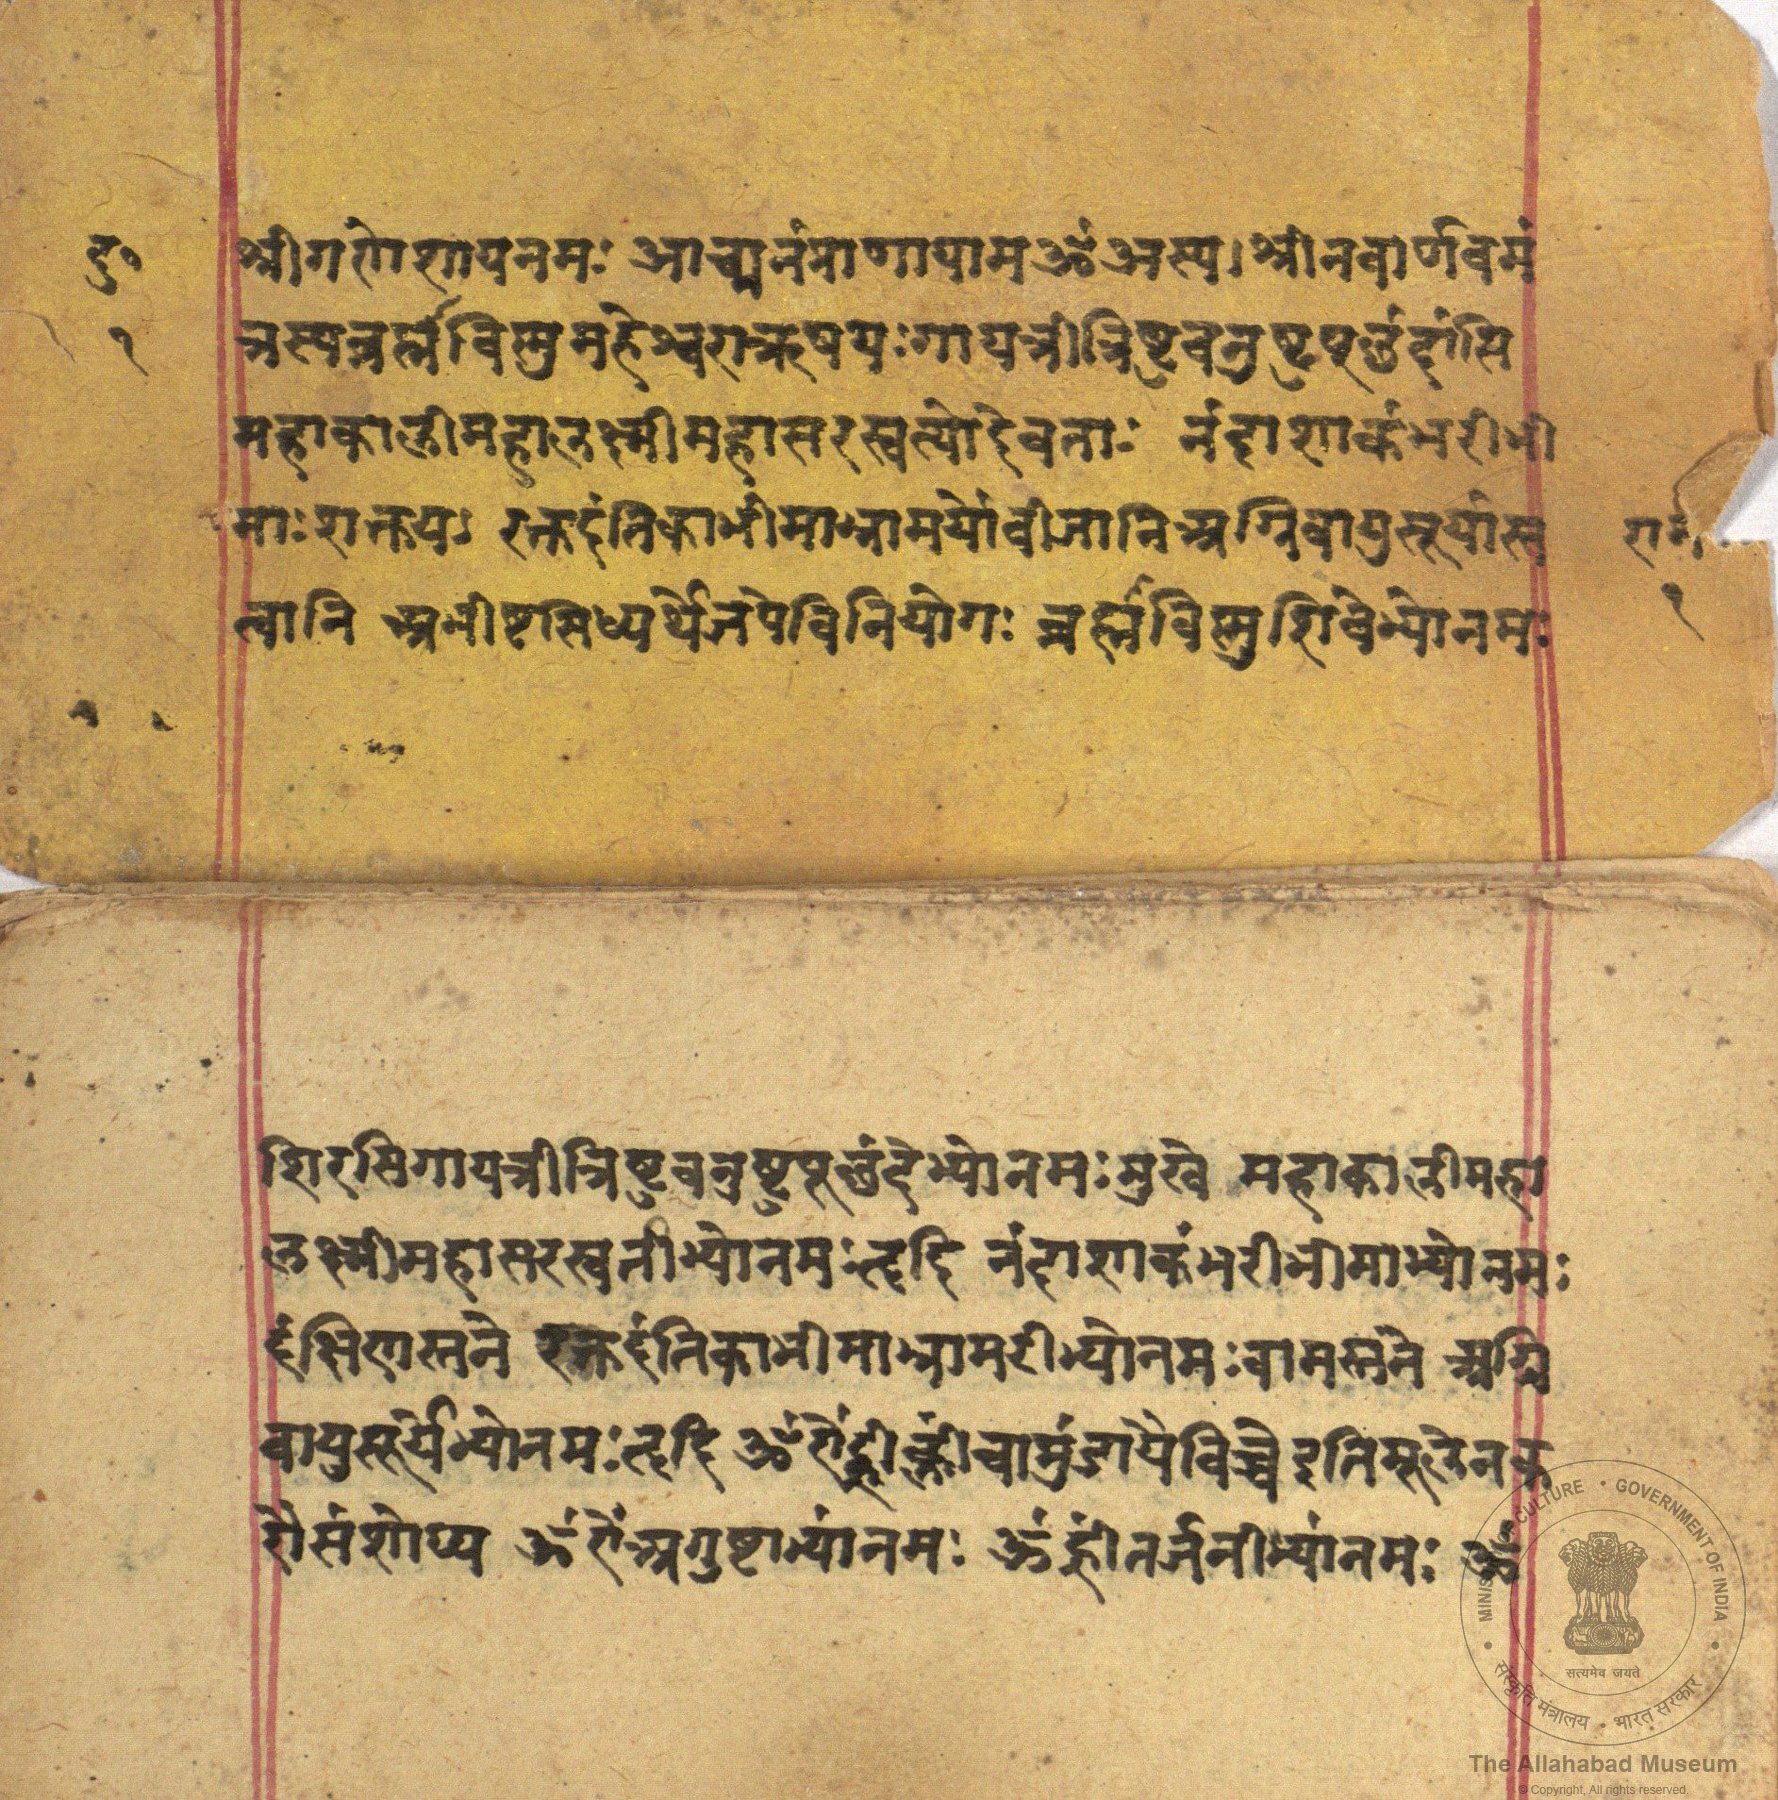 दु०
१
श्रीगणेशायनमः आचम्नंप्राणायाम ॐ अस्य। श्रीनवार्णवमं
त्रस्यब्रर्ह्मविष्णुमहेश्वराऋषयः गायत्रीत्रिष्टुबनुष्टुप्छंदांसि
महाकालीमहालक्ष्मीमहासरस्वत्योदेवताः नंदाशाकंभरीभी
माः शक्तयः रक्तदंतिकाभीमाभ्रामर्योबीजानि अग्निवायुसूर्यास्त
त्वानि अभीष्टसिध्यर्थेजपेविनियोगः ब्रर्ह्मविष्णुशिवेभ्योनमः
राम
१
शिरसिगायत्रीत्रिष्टुबनुष्टुप्छंदेभ्योनमः मुखे महाकालीमहा
लक्ष्मीमहासरस्वतीभ्योनमः हृदि नंदाशाकंभरीभीमाभ्योनमः
दंक्षिणस्तने रक्तदंतिकाभीमाभ्रामरीभ्योनमः वामस्तने अग्नि
वायुसूर्येभ्योनमः हृदि ॐ ऐंह्रींक्लींचामुंडायैविच्चै इतिमूलेनक
रौसंशोध्य ॐ ऐं अगुष्टाभ्यांनमः ॐ ह्रींतर्जनीभ्यांनमः ॐ
MINISTRY OF CULTURE • GOVERNMENT OF INDIA
सत्यमेव जयते
संस्कृति मंत्रालय • भारत सरकार
The Allahabad Museum
© Copyright, All rights reserved.